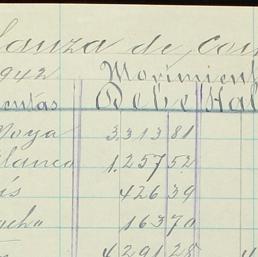 lanza de Com
1942 Movimient
entas Debe Hal
Moya 3.313 81
Blanco 1.257 52
is 426 39
acho 163 70
4 291 28